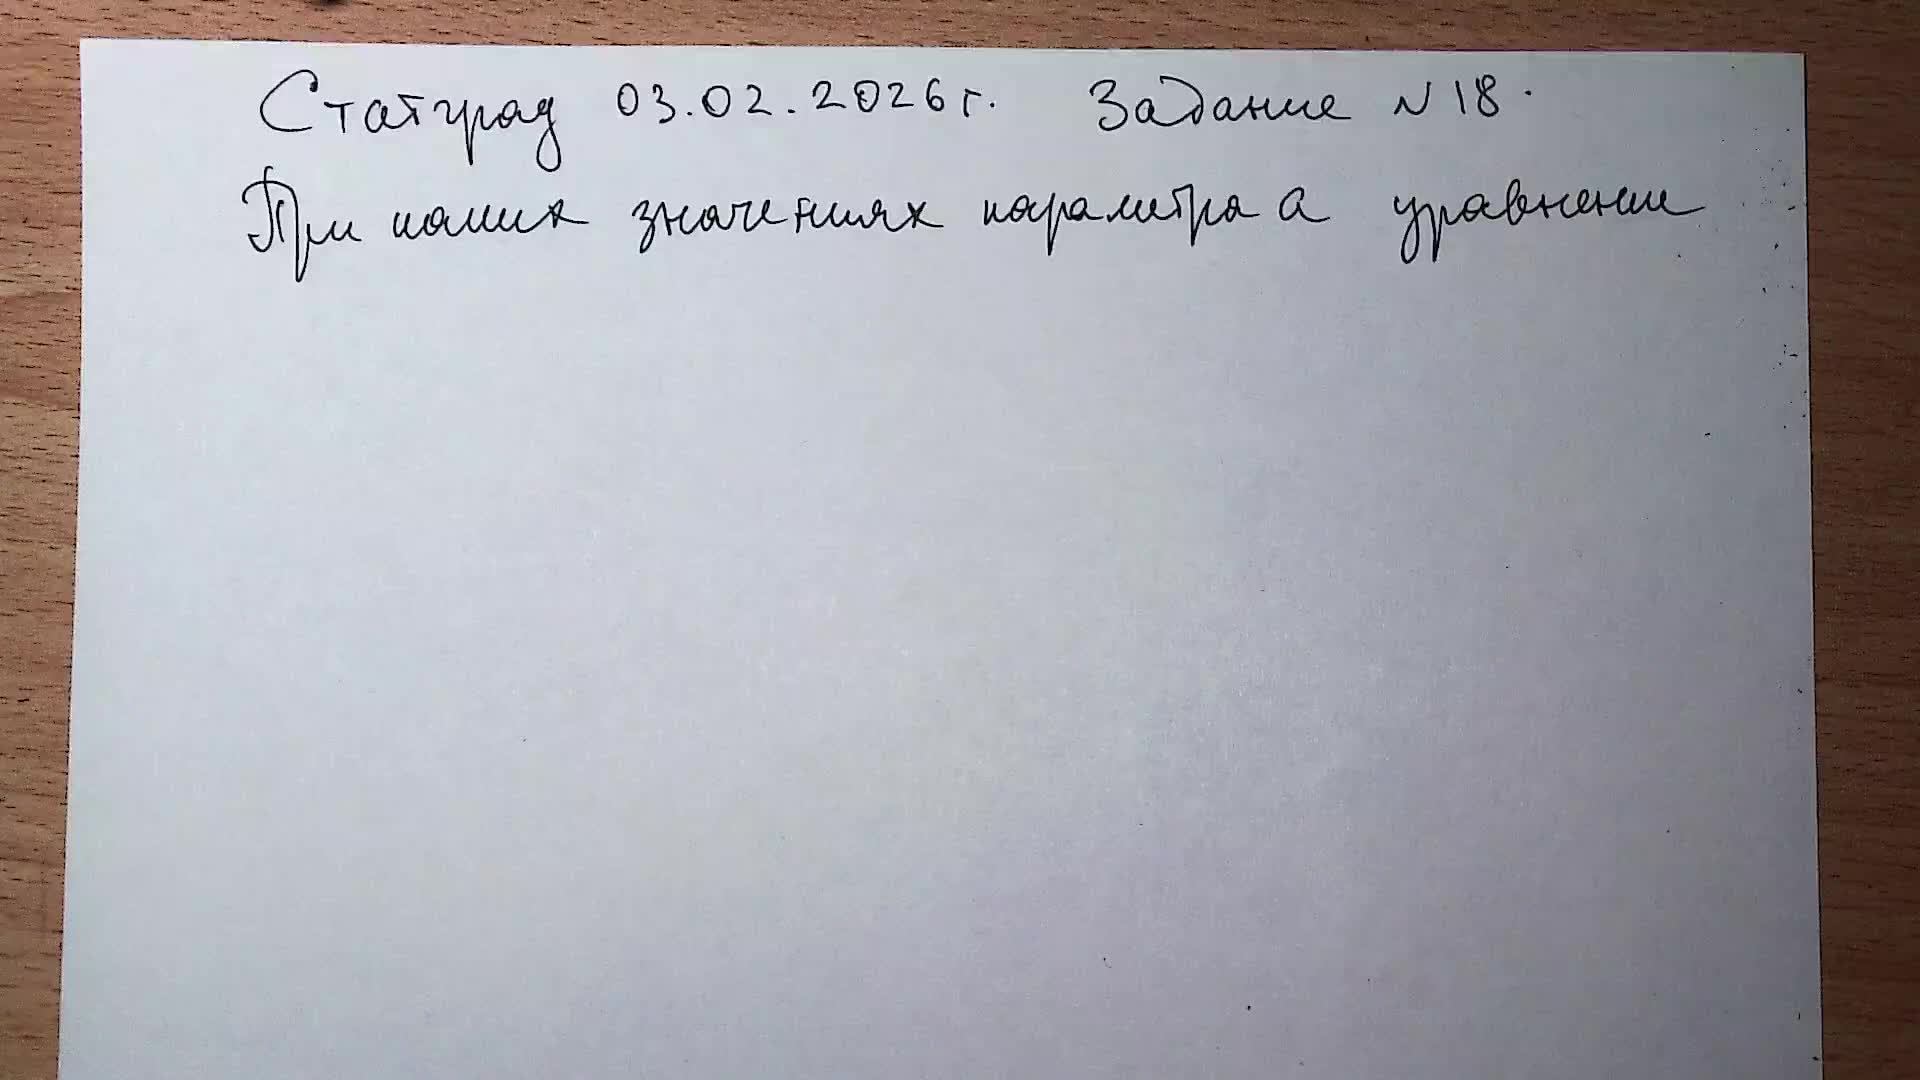 Статград 03.02.2026г. Задание N18.
При каких значениях параметра а уравнение